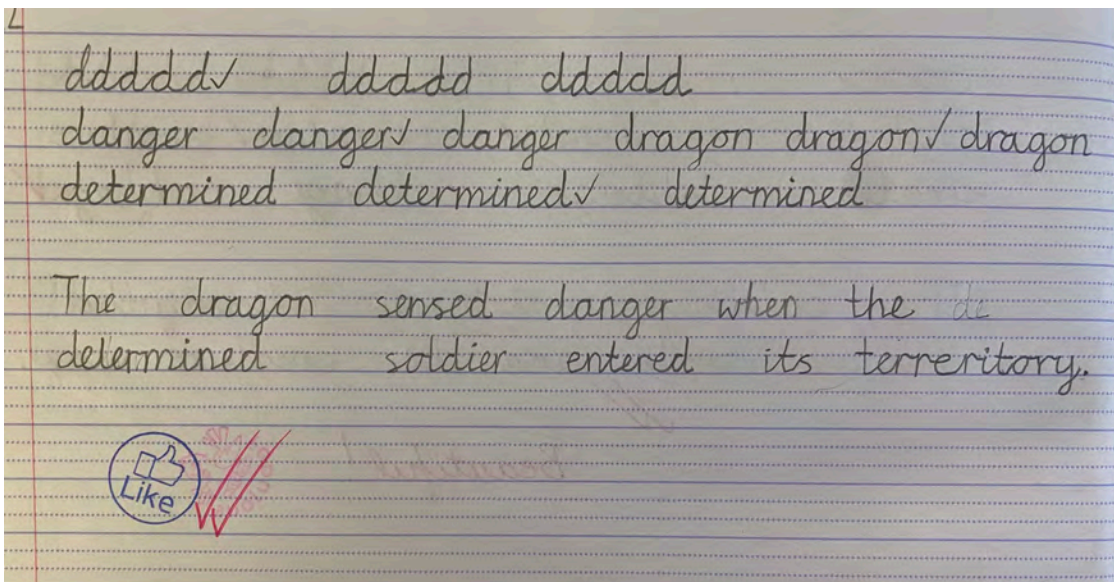 ddddd✓ ddddd ddddd
danger danger✓ danger dragon dragon✓ dragon
determined determined✓ determined
The dragon sensed danger when the de
determined soldier entered its terreritory.
Like